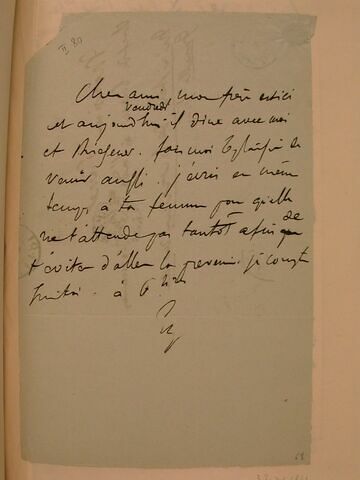 II. 80
Cher ami, mon frère est ici
vendredi
et aujourd'hui il dine avec moi
et . fais moi le plaisir de
venir aussi. j'écris en même
temps à ta femme pour qu'elle
ne t'attende pas tantôt afin de
t'éviter d'aller la prévenir. je compte
à 6 h